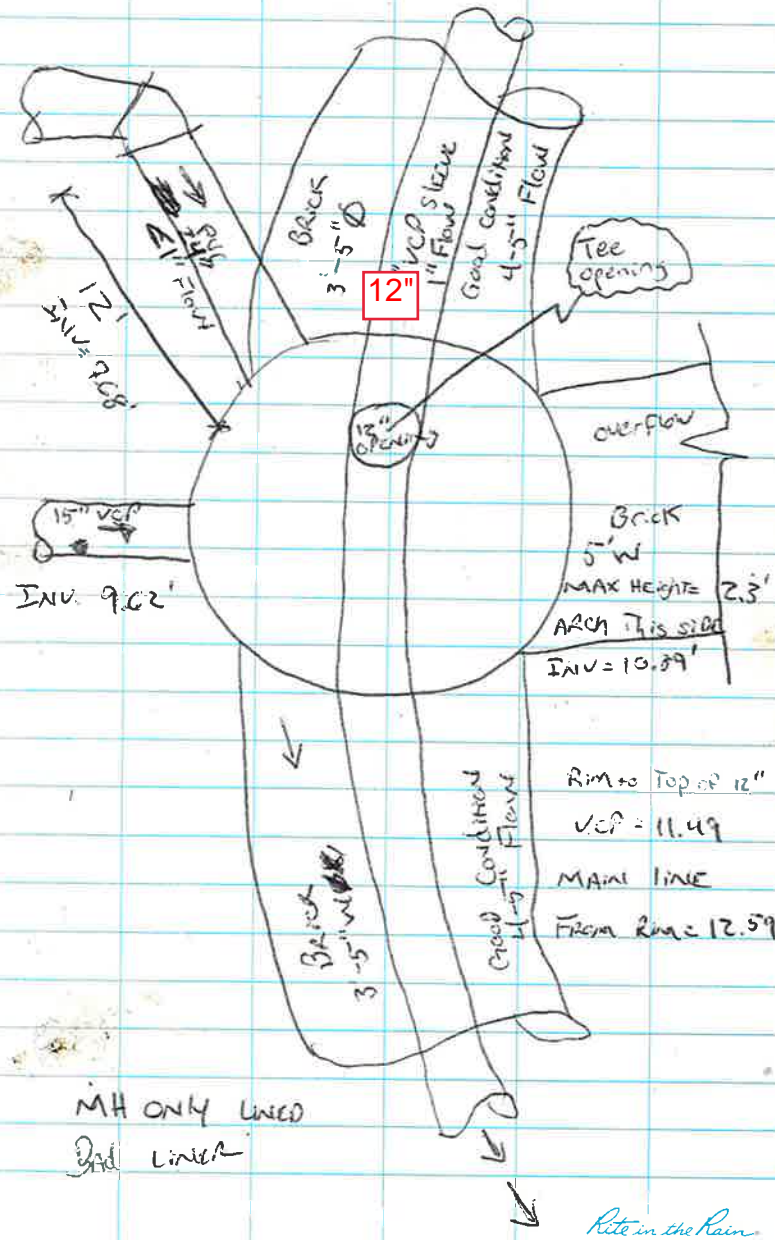 BRICK
3'-5" Ø
12"
" VCP Sleeve
1" Flow
Good condition
4-5" Flow
Tee
opening
1" Flow
12'
INV= 7.68'
12"
OPENING
overflow
15" VCP
INV. 9.62'
Brick
5' W
MAX HEIGHT= 2.3'
ARCH This side
INV= 10.39'
Rim to Top of 12"
VCP = 11.49
MAIN LINE
FROM Rim= 12.59
BRICK
3'-5" W
Good Condition
4-5" Flow
MH ONLY LINED
Bad LINER
Rite in the Rain